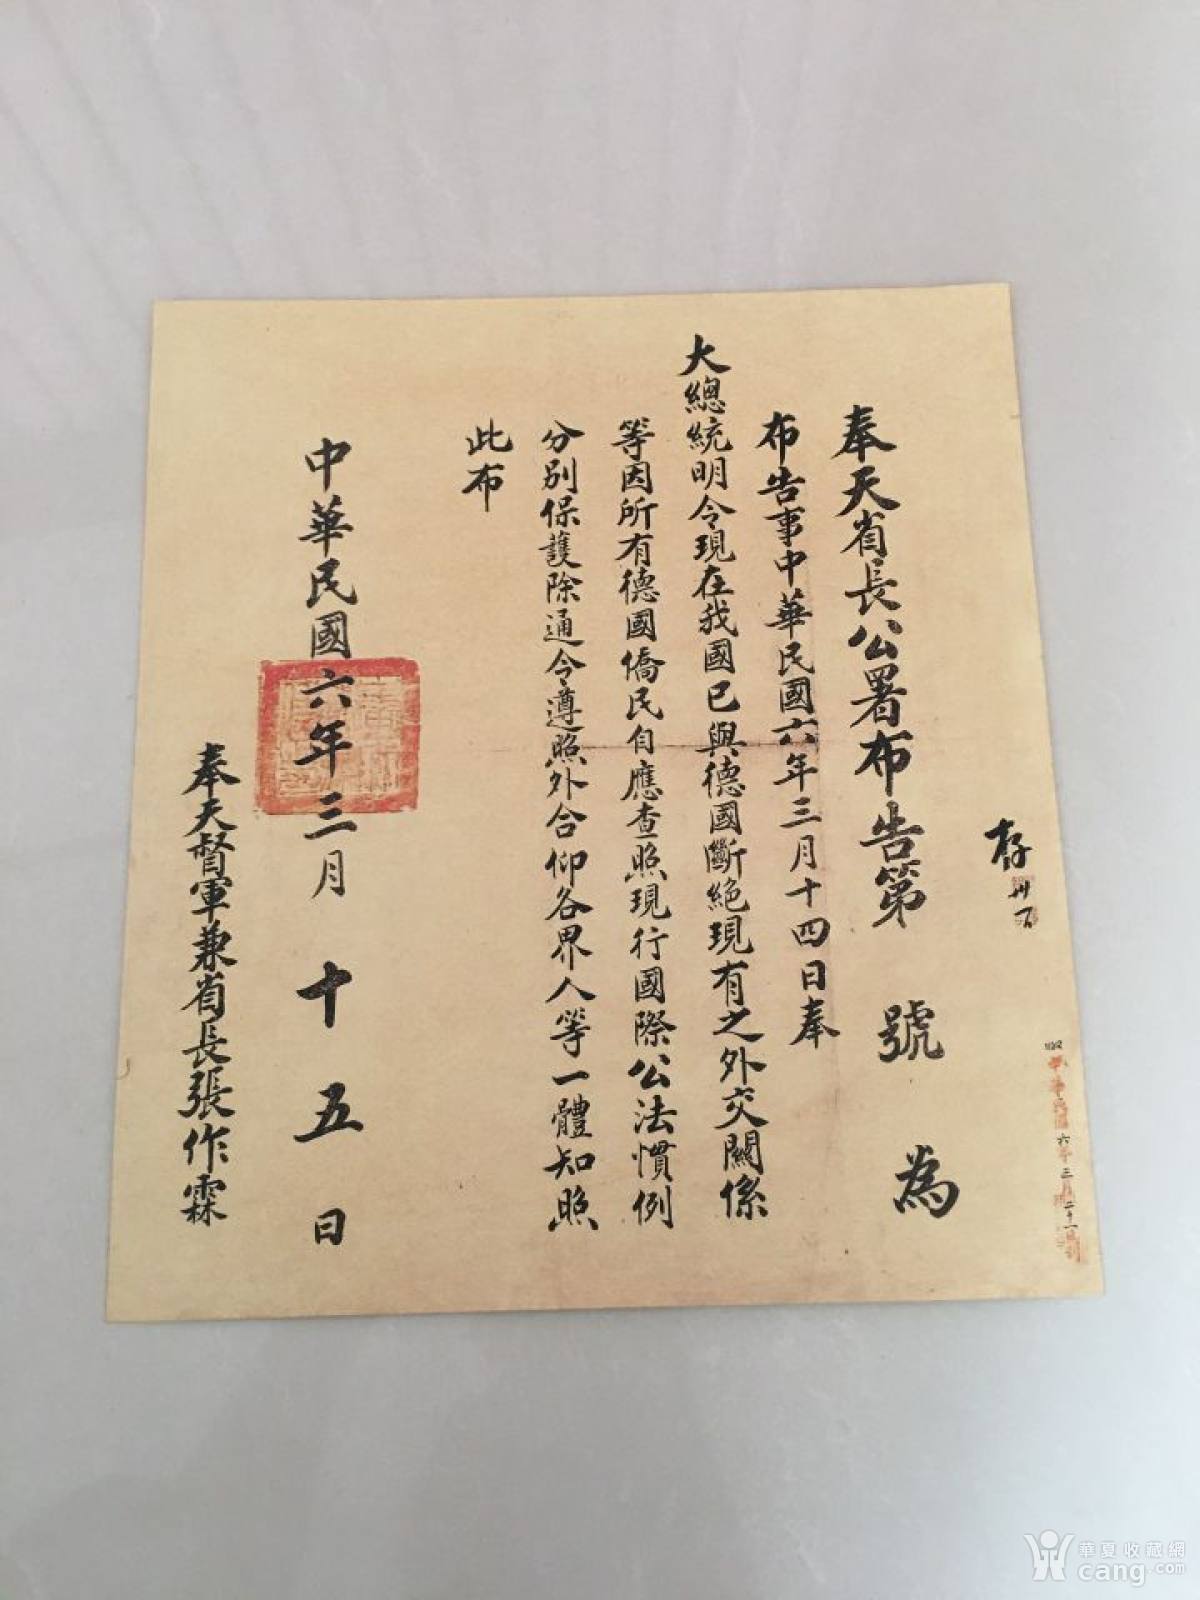 存
中華民國六年三月二十一日到
奉天省長公署布告第 號 為
布告事中華民國六年三月十四日奉
大總統明令現在我國已與德國斷絕現有之外交關係
等因所有德國僑民自應查照現行國際公法慣例
分別保護除通令遵照外合仰各界人等一體知照
此布
中華民國六年三月十五日
奉天督軍兼省長張作霖
華夏收藏網
cang.com